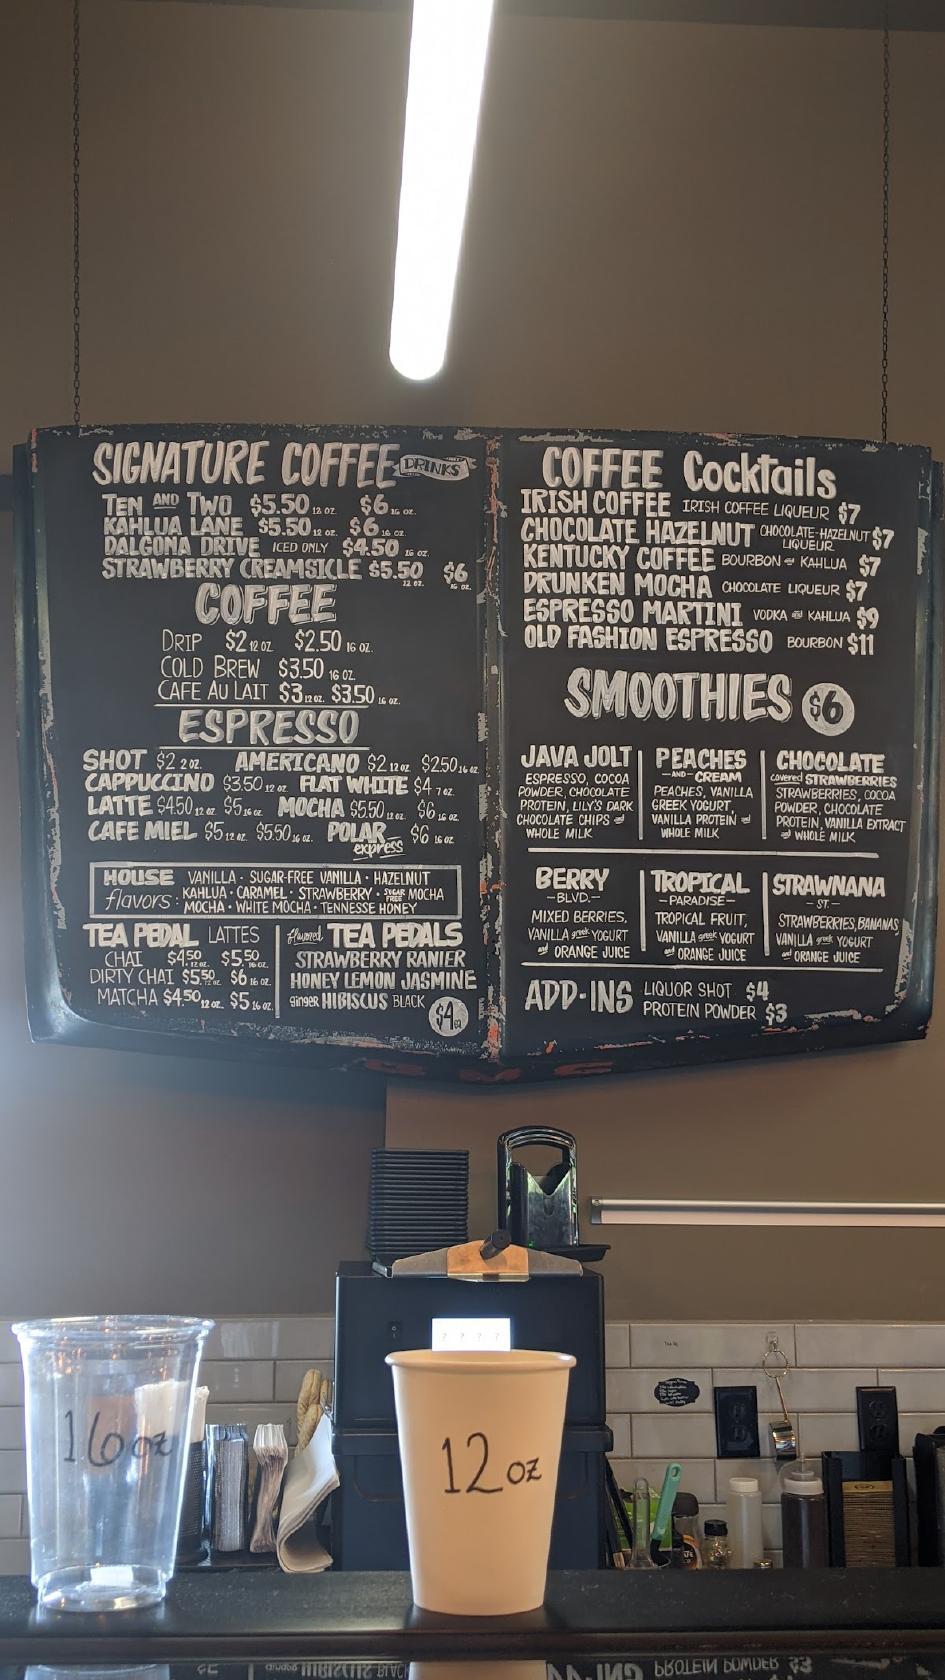 SIGNATURE COFFEE DRINKS
TEN AND TWO $5.50 12 OZ. $6 16 OZ.
KAHLUA LANE $5.50 12 OZ. $6 16 OZ.
DALGONA DRIVE ICED ONLY $4.50 16 OZ.
STRAWBERRY CREAMSICLE $5.50 12 OZ. $6 16 OZ.
COFFEE
DRIP $2 12 OZ. $2.50 16 OZ.
COLD BREW $3.50 16 OZ.
CAFE AU LAIT $3 12 OZ. $3.50 16 OZ.
ESPRESSO
SHOT $2 2 OZ. AMERICANO $2 12 OZ. $2.50 16 OZ.
CAPPUCCINO $3.50 12 OZ. FLAT WHITE $4 7 OZ.
LATTE $4.50 12 OZ. $5 16 OZ. MOCHA $5.50 12 OZ. $6 16 OZ.
CAFE MIEL $5 12 OZ. $5.50 16 OZ. POLAR express $6 16 OZ.
HOUSE flavors: VANILLA · SUGAR-FREE VANILLA · HAZELNUT
KAHLUA · CARAMEL · STRAWBERRY · SUGAR FREE MOCHA
MOCHA · WHITE MOCHA · TENNESSE HONEY
TEA PEDAL LATTES
CHAI $4.50 12 OZ. $5.50 16 OZ.
DIRTY CHAI $5.50 12 OZ. $6 16 OZ.
MATCHA $4.50 12 OZ. $5 16 OZ.
flavored TEA PEDALS
STRAWBERRY RANIER
HONEY LEMON JASMINE
ginger HIBISCUS BLACK
$4
COFFEE Cocktails
IRISH COFFEE IRISH COFFEE LIQUEUR $7
CHOCOLATE HAZELNUT CHOCOLATE-HAZELNUT LIQUEUR $7
KENTUCKY COFFEE BOURBON and KAHLUA $7
DRUNKEN MOCHA CHOCOLATE LIQUEUR $7
ESPRESSO MARTINI VODKA and KAHLUA $9
OLD FASHION ESPRESSO BOURBON $11
SMOOTHIES $6
JAVA JOLT
ESPRESSO, COCOA
POWDER, CHOCOLATE
PROTEIN, LILY'S DARK
CHOCOLATE CHIPS and
WHOLE MILK
PEACHES
-AND- CREAM
PEACHES, VANILLA
GREEK YOGURT,
VANILLA PROTEIN and
WHOLE MILK
CHOCOLATE
covered STRAWBERRIES
STRAWBERRIES, COCOA
POWDER, CHOCOLATE
PROTEIN, VANILLA EXTRACT
and WHOLE MILK
BERRY
-BLVD.-
MIXED BERRIES,
VANILLA greek YOGURT
and ORANGE JUICE
TROPICAL
-PARADISE-
TROPICAL FRUIT,
VANILLA greek YOGURT
and ORANGE JUICE
STRAWNANA
-ST.-
STRAWBERRIES, BANANAS,
VANILLA greek YOGURT
and ORANGE JUICE
ADD-INS LIQUOR SHOT $4
PROTEIN POWDER $3
GMC
? ? ? ?
16 oz
12 oz